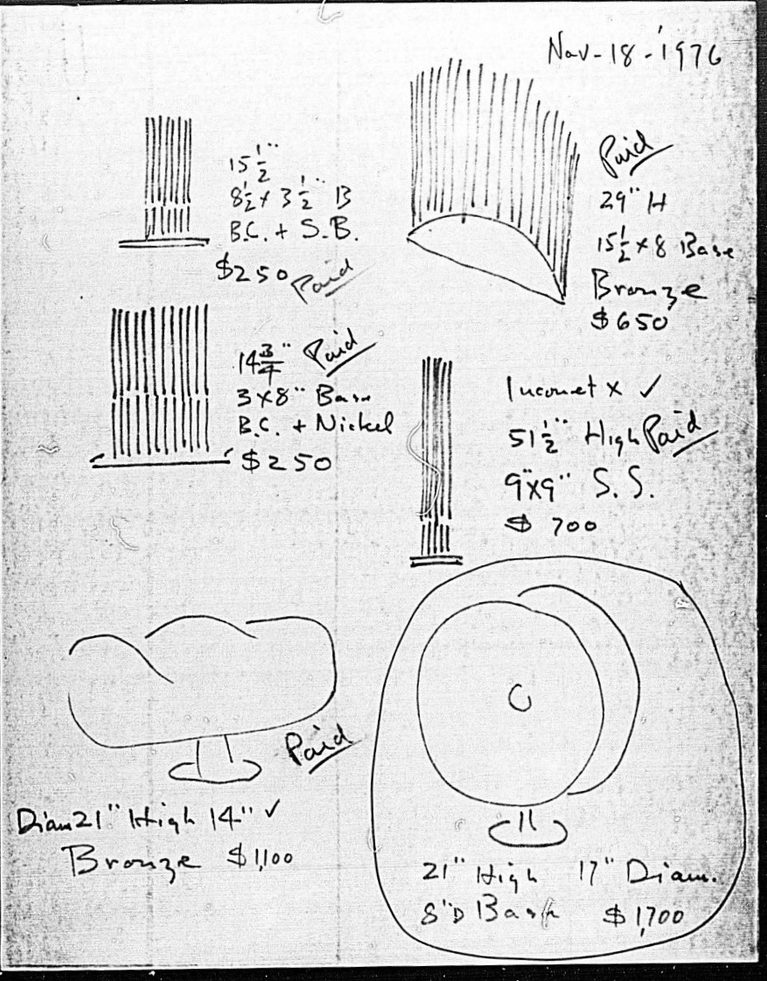 Nov-18-1976
15 1/2"
8 1/2 x 3 1/2" B
B.C. + S.B.
$250 Paid
Paid
29" H
15 1/2 x 8 Base
Bronze
$650
14 3/4" Paid
3x8" Base
B.C. + Nickel
$250
x ✓
51 1/2" High Paid
9"x9" S.S.
$ 700
Paid
Diam 21" High 14" ✓
Bronze $1,100
21" High 17" Diam.
8"D Base $1,700